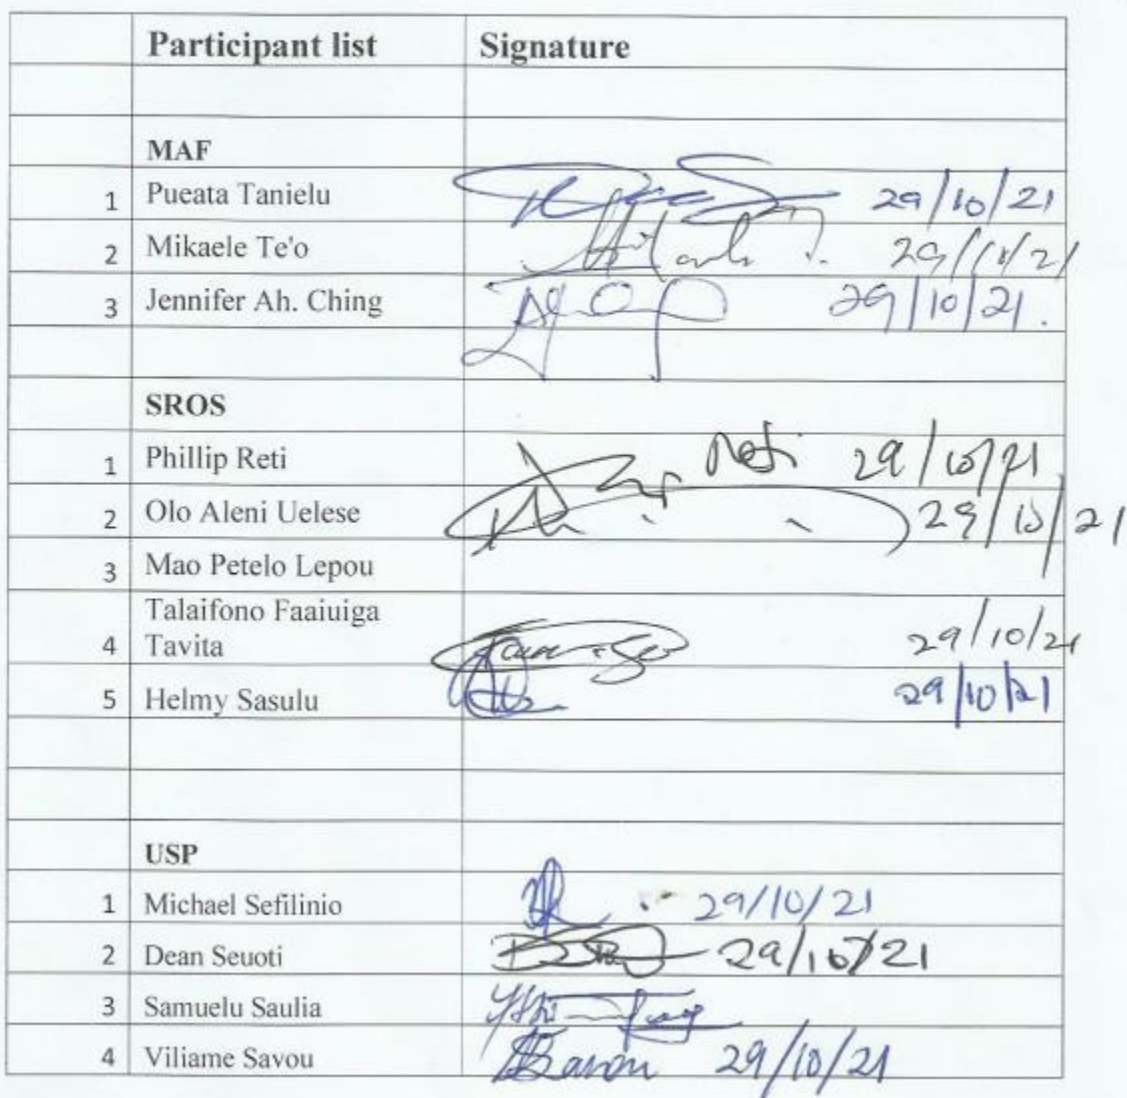 Participant list Signature
MAF
1 Pueata Tanielu 29/10/21
2 Mikaele Te'o 29/10/21
3 Jennifer Ah. Ching 29/10/21.
SROS
1 Phillip Reti Reti 29/10/21
2 Olo Aleni Uelese 29/10/21
3 Mao Petelo Lepou
Talaifono Faaiuiga
4 Tavita 29/10/21
5 Helmy Sasulu 29/10/21
USP
1 Michael Sefilinio 29/10/21
2 Dean Seuoti 29/10/21
3 Samuelu Saulia
4 Viliame Savou 29/10/21